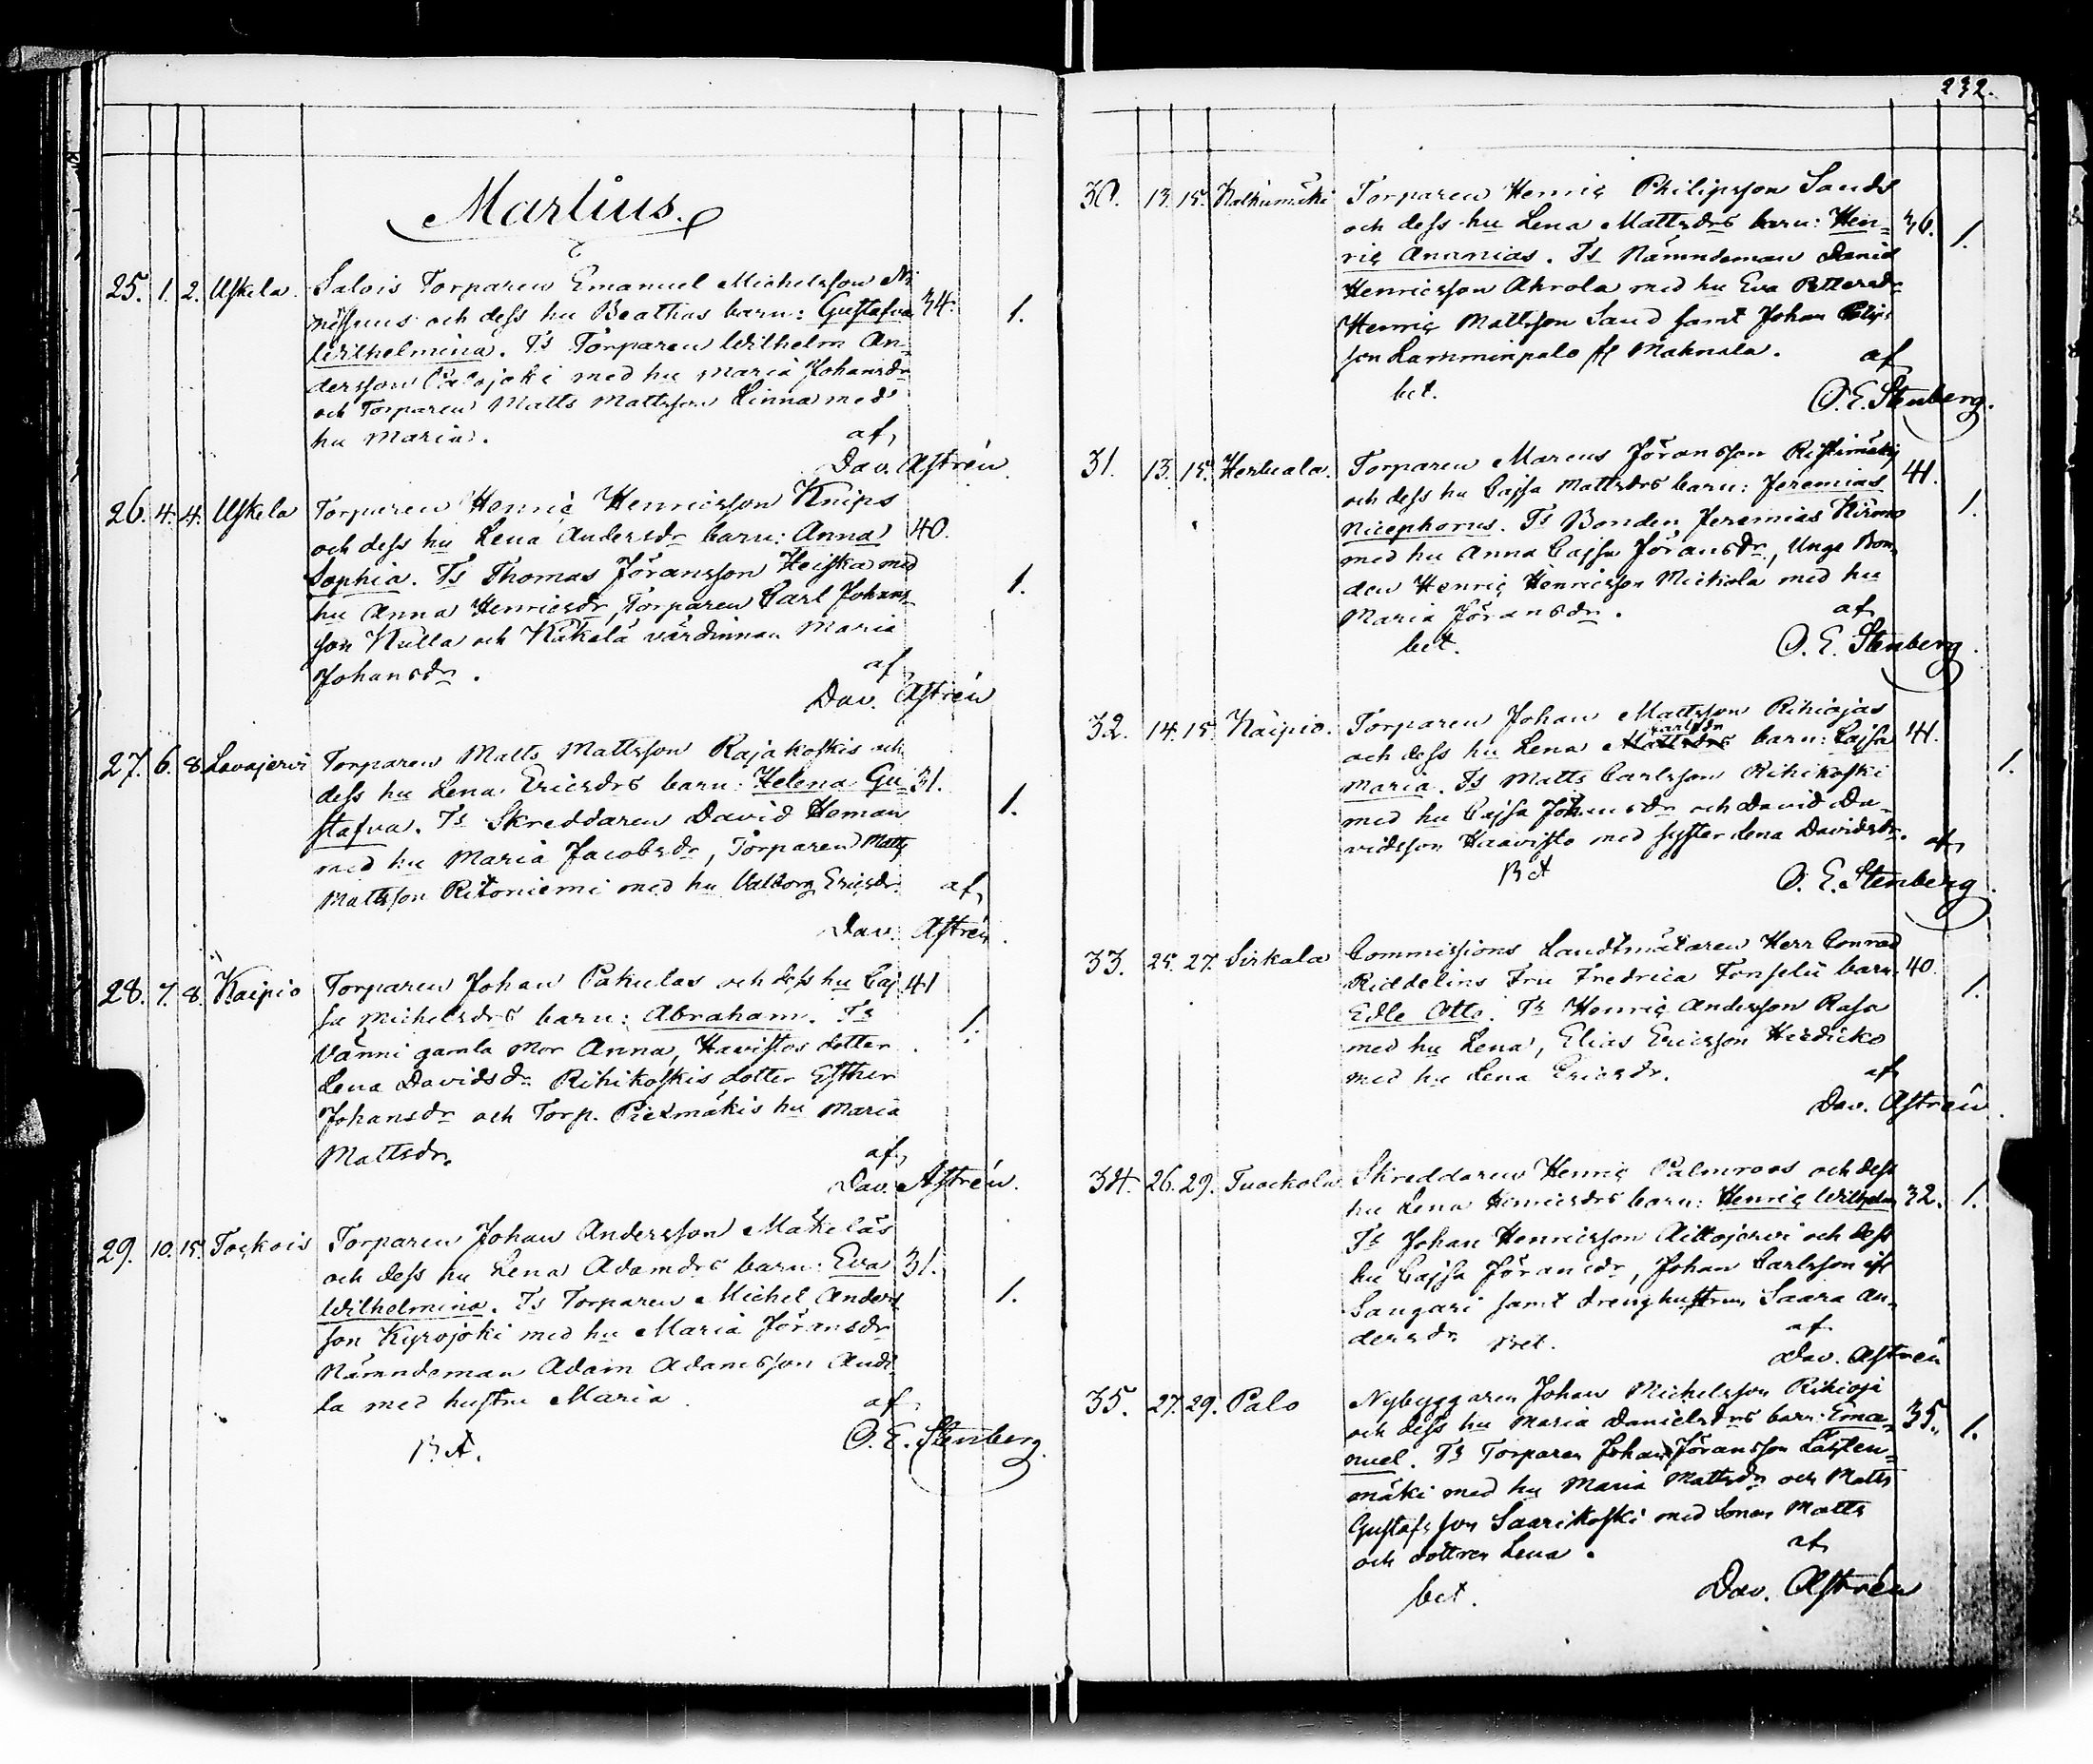 Martius.
25. 1. 2. Uskela. Salois Torparen Emanuel Michelsson
och dess hu Beathas barn: Gustafva 34. 1.
Wilhelmina. Ts Torparen Wilhelm An-
dersson med hu Maria Johansdr
och Torparen Matts Mattsson Linna med
hu Maria. af,
Dav. Astrén
26. 4. 4. Uskela Torparen Henric Henricsson Knips
och dess hu Lena Andersdr barn: Anna 40.
Sophia. Ts Thomas Jöransson Heiska med 1.
hu Anna Henricsdr, Torparen Carl Johans-
son Kulla och Käkelä värdinnan Maria
Johansdr. af,
Dav. Astrén
27. 6. 8 Lavajervi Torparen Matts Mattsson Rajakoskis och
dess hu Lena Ericsdrs barn: Helena Gu- 31. 1.
stafva. Ts Skreddaren David Homan
med hu Maria Jacobsdr, Torparen Matts
Mattsson Ritoniemi med hu Valborg Ericsdr. af,
Dav. Astrén.
28. 7. 8. Kaipio Torparen Johan Pakulas och dess hu Caj- 41
sa Michelsdrs barn: Abraham. Ts 1.
Vänni gamla Mor Anna, Havistos dotter
Lena Davidsdr Rihikoskis dotter Esther
Johansdr och Torp. Pietmäkis hu Maria
Mattsdr. af,
Dav. Astrén.
29. 10. 15. Tockois Torparen Johan Andersson Mäkeläs
och dess hu Lena Adamsdrs barn: Eva 31. 1.
Wilhelmina. Ts Torparen Michel Anders-
son Kyrojoki med hu Maria Jöransdr
Nämndeman Adam Adamsson Andi-
la med hustru Maria. af,
Bet. O. E. Stenberg.
232.
30. 13. 15. Kalkumäki Torparen Henric Philipsson Sands
och dess hu Lena Mattsdrs barn: Hen- 36. 1.
ric Ananias. Ts Nämndeman Daniel
Henricsson Ahrola med hu Eva Pettersdr
Henric Mattsson Sand samt Johan Philips-
son Lamminpalo fr Mahnala. af
bet. O. E. Stenberg.
31. 13. 15. Herttuala. Torparen Marcus Jöransson Ristimäkis 41.
och dess hu Cajsa Mattsdrs barn: Jeremias 1.
Nicephorus. Ts Bonden Jeremias Hirvo
med hu Anna Cajsa Jöransdr, Unge Bon-
den Henric Henricsson Mickola med hu
Maria Jöransdr. af
bet. O. E. Stenberg.
32. 14. 15. Kaipio. Torparen Johan Mattsson Rihiojas
Carlsdr
och dess hu Lena Mattsdrs barn: Cajsa 41. 1.
Maria. Ts Matts Carlsson Rihikoski
med hu Cajsa Johansdr och David Da-
vidsson Haavisto med syster Lena Davidsdr. af,
Bet O. E. Stenberg.
33. 25. 27. Sirkala Commissions Landtmätaren Herr Conrad
Riddelins Fru Fredrica Forselii barn 40. 1.
Edle Otto. Ts Henric Andersson Rasa
med hu Lena, Elias Ericsson Heidicko
med hu Lena Ericsdr. af
Dav. Astrén.
34. 26. 29. Tuockola Skreddaren Henric Palmroos och dess
hu Lena Henricsdrs barn: Henric Wilhelm 32. 1.
Ts Johan Henricsson Aittojervi och dess
hu Cajsa Jöransdr, Johan Carlsson ifr
Saugari samt drenghustrun Saara An-
dersdr Bet. af
Dav. Astrén
35. 27. 29. Palo Nybyggaren Johan Michelsson Rihioja
och dess hu Maria Danielsdrs barn: Ema- 35. 1.
nuel. Ts Torparen Johan Jöransson
mäki med hu Maria Mattsdr och Matts
Gustafsson Saarikoski med Sonen Matts
och dottren Lena. af
bet. Dav. Astrén